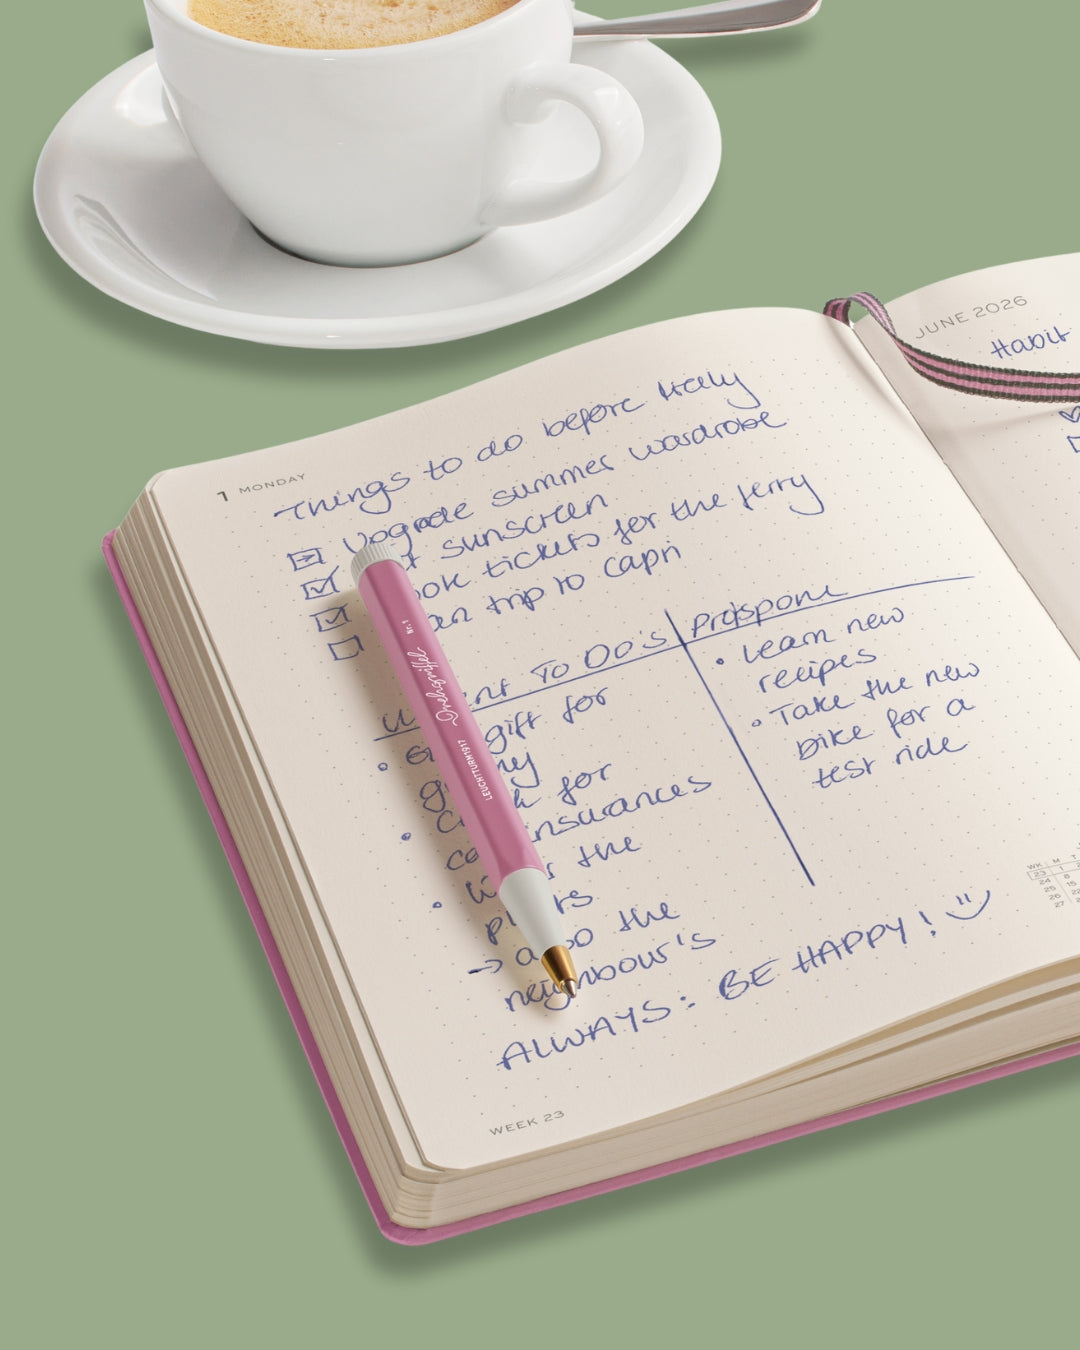 1 MONDAY
Things to do before Italy
Upgrade summer wardrobe
sunscreen
tickets for the ferry
trip to capri
To Do's
gift for
for
insurances
the
→ the
neighbour's
Postpone
• Learn new
recipes
• Take the new
bike for a
test ride
ALWAYS: BE HAPPY!
WEEK 23
Nr.1
Drehgriffel
LEUCHTTURM1917
JUNE 2026
Habit
WK M T
23 1
24 8
25 15
26
27